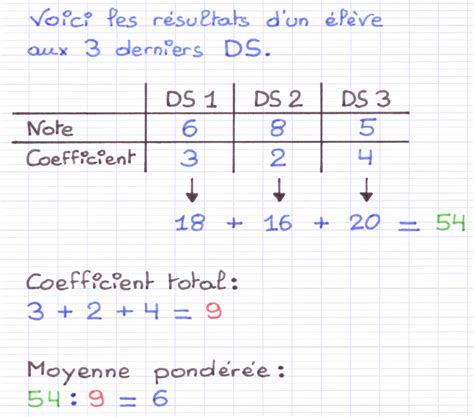 Voici les résultats d'un élève
aux 3 derniers DS.
DS 1 DS 2 DS 3
Note 6 8 5
Coefficient 3 2 4
↓ ↓ ↓
18 + 16 + 20 = 54
Coefficient total :
3 + 2 + 4 = 9
Moyenne pondérée :
54 : 9 = 6